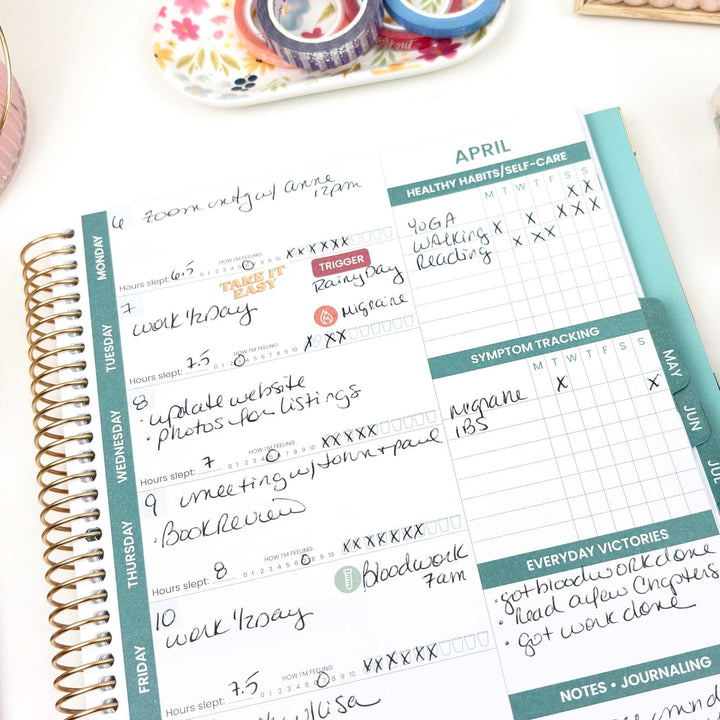 APRIL
MONDAY
6 zoom mtg w/ Anne
12pm
Hours slept: 6.5
HOW I'M FEELING
0 1 2 3 4 5 6 7 8 9 10
XXXXXX
TAKE IT
EASY
TRIGGER
Rainy Day
TUESDAY
7
work 1/2 Day
Migraine
Hours slept: 7.5
HOW I'M FEELING
0 1 2 3 4 5 6 7 8 9 10
X XX
WEDNESDAY
8
• update website
• photos for listings
Hours slept: 7
HOW I'M FEELING
0 1 2 3 4 5 6 7 8 9 10
XXXXX
THURSDAY
9 meeting w/ John + paul
• Book Review
Hours slept: 8
HOW I'M FEELING
0 1 2 3 4 5 6 7 8 9 10
XXXXXXX
Bloodwork
7am
FRIDAY
10
work 1/2 Day
Hours slept: 7.5
HOW I'M FEELING
0 1 2 3 4 5 6 7 8 9 10
XXXXXX
Lisa
HEALTHY HABITS/SELF-CARE
M T W T F S S
YOGA X X
Walking X X X X X
Reading X X X
SYMPTOM TRACKING
M T W T F S S
Migraine X X
IBS
EVERYDAY VICTORIES
• got bloodwork done
• Read a few Chapters
• got work done
NOTES • JOURNALING
MAY
JUN
JUL